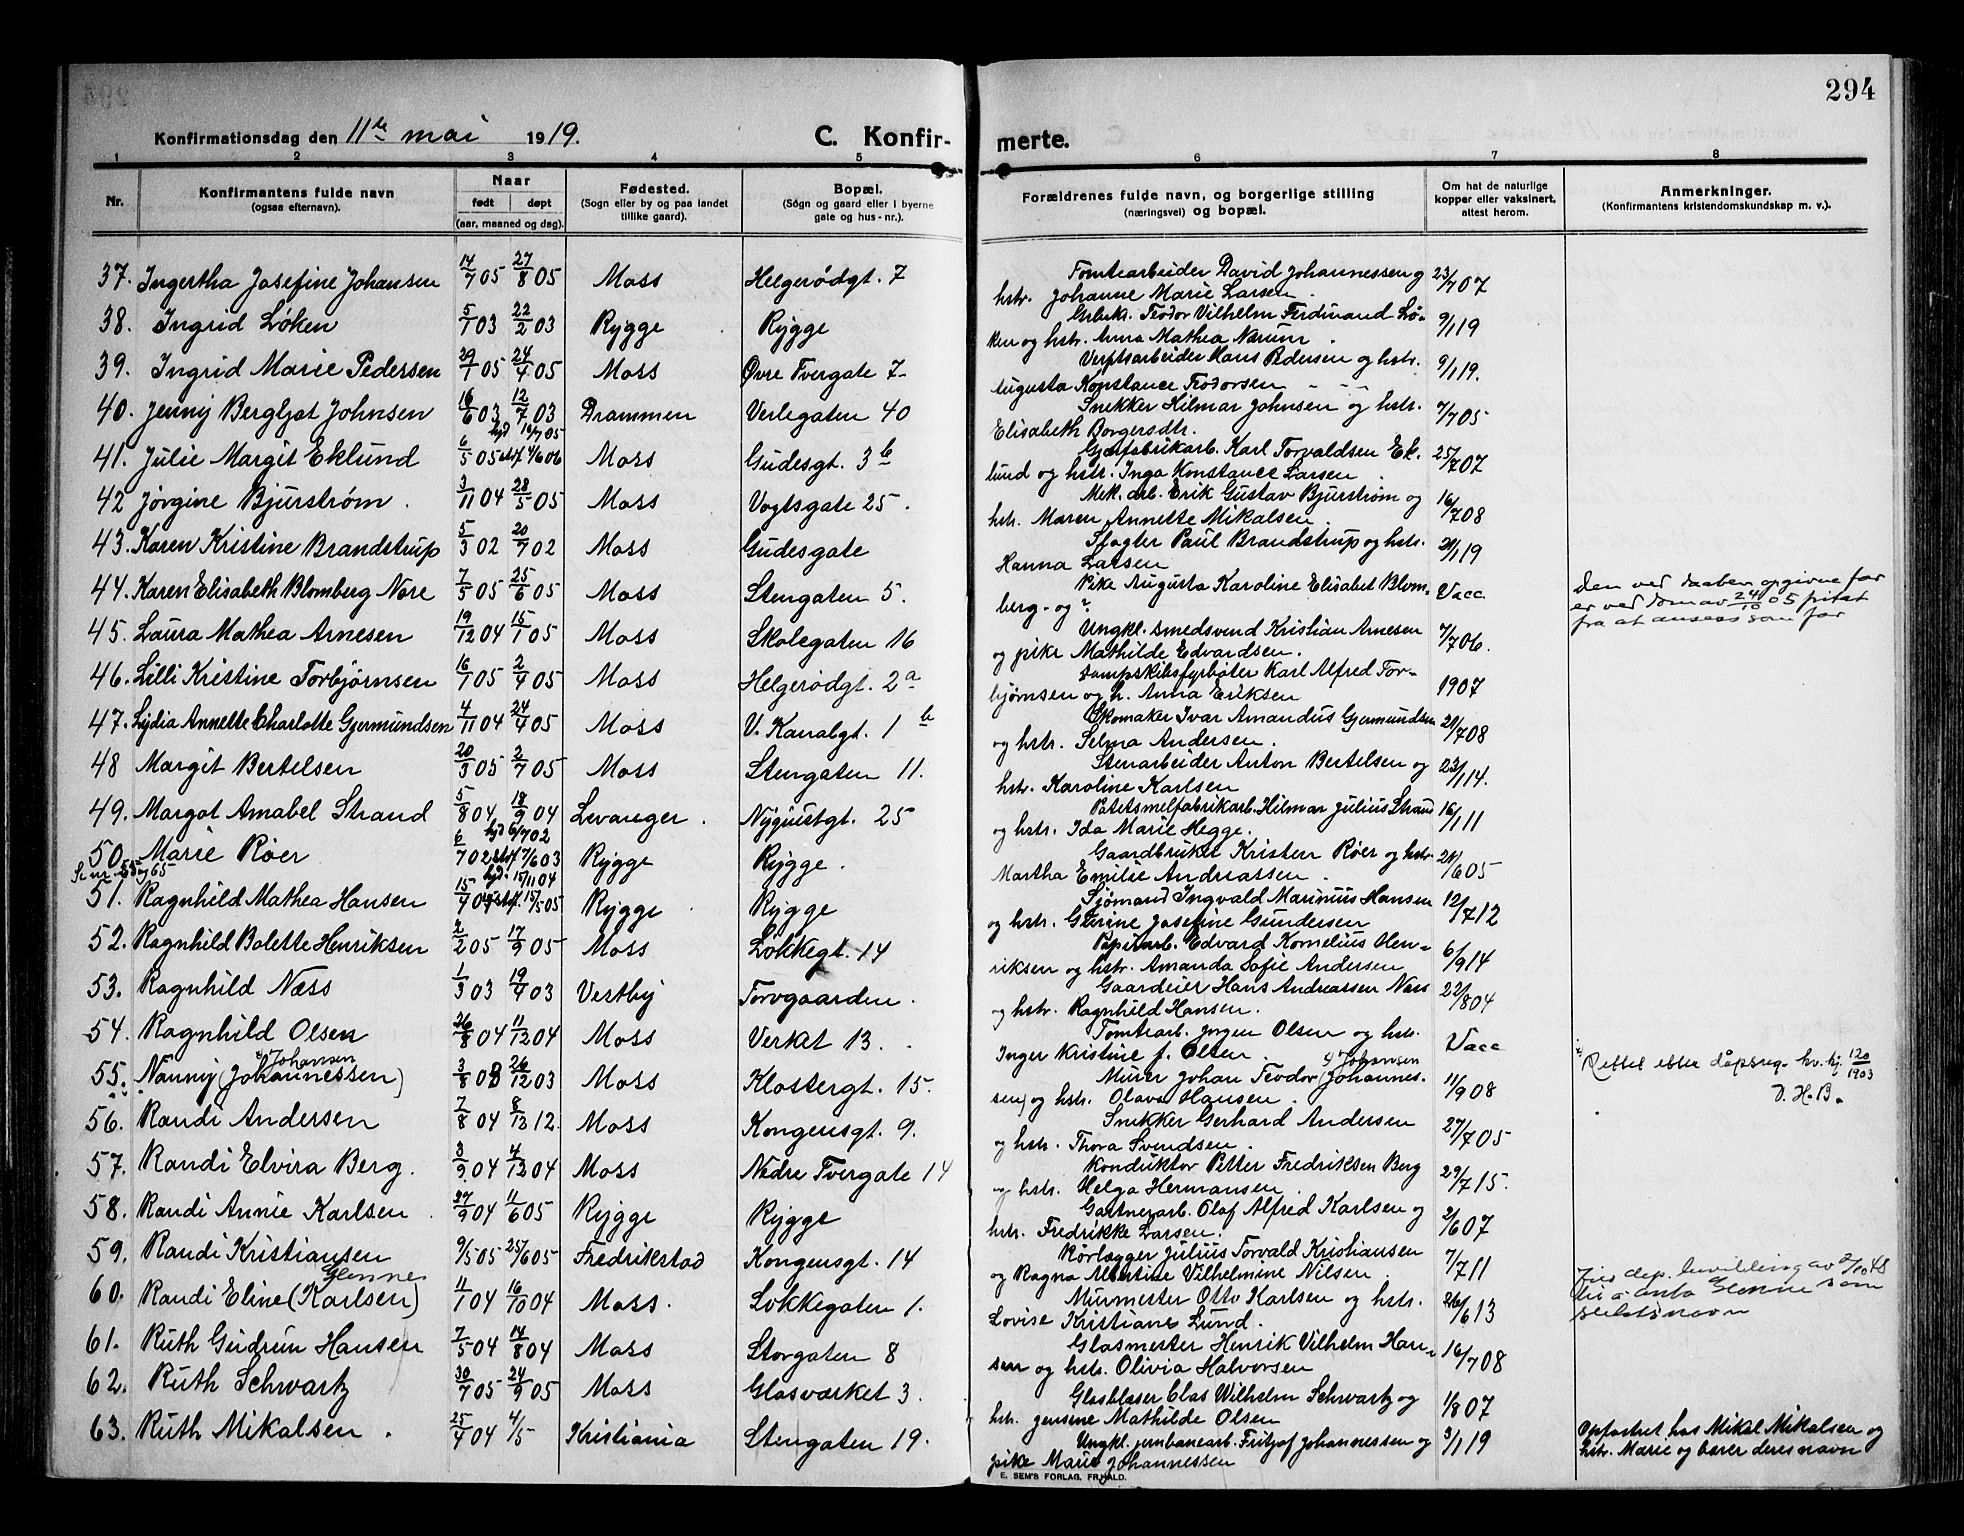 294
Konfirmationsdag den 11te mai 1919.
C. Konfir-
merte.
1 2 3 4 5 6 7 8
Nr.
Konfirmantens fulde navn
(ogsaa efternavn).
Naar
født døpt
(aar, maaned og dag).
Fødested.
(Sogn eller by og paa landet
tillike gaard).
Bopæl.
(Sogn og gaard eller i byerne
gate og hus-nr.).
Forældrenes fulde navn, og borgerlige stilling
(næringsvei) og bopæl.
Om hat de naturlige
kopper eller vaksinert,
attest herom.
Anmerkninger.
(Konfirmantens kristendomskundskap m. v.).
37. Ingertha Josefine Johansen 14/7 05 27/8 05 Moss Helgerødgt. 7
Tomtearbeider David Johannessen og 23/7 07
hstr. Johanne Marie Larsen.
38. Ingrid Løken 5/1 03 22/2 03 Rygge Rygge
Grbrk. Teodor Vilhelm Ferdinand Lø- 9/1 19
ken og hstr. Anna Mathea Nærum.
39. Ingrid Marie Pedersen 29/1 05 24/4 05 Moss Øvre Tvergate 7
Verftsarbeider Hans Pedersen og hstr. 9/1 19.
Augusta Konstance Teodorsen
40. Jenny Bergljot Johnsen 16/6 03 12/7 03 Drammen Verlegaten 40
Snekker Hilmar Johnsen og hstr. 7/7 05
Elisabeth Borgersdtr.
41. Julie Margit Eklund 6/5 05 hjd 16/7 05 stf 4/6 06 Moss Gudesgt. 3b
Gjærfabrikarb. Karl Torvaldsen Ek- 25/7 07
lund og hstr. Inga Konstance Larsen
42 Jørgine Bjurstrøm. 3/11 04 28/5 05 Moss Vogtsgate 25.
Mek. arb. Erik Gustav Bjurstrøm og 16/7 08
hstr. Maren Annette Mikalsen.
43. Karen Kristine Brandstrup 5/3 02 20/7 02 Moss Gudesgate
Slagter Paul Brandstrup og hstr. 21/1 19
Hanna Larsen
44. Karen Elisabeth Blomberg Nore 7/5 05 25/6 05 Moss Stengaten 5.
Pike Augusta Karoline Elisabet Blom- Vacc
berg - og ?
Den ved daaben opgivne far
er ved dom av 24/10 05 fritat
fra at ansees som far
45. Laura Mathea Arnesen 19/12 04 15/1 05 Moss Skolegaten 16
Ungkl. smedsvend Kristian Arnesen 7/7 06.
og pike Mathilde Edvardsen.
46. Lilli Kristine Torbjørnsen 16/1 05 2/4 05 Moss Helgerødgt. 2a
Dampskibsfyrbøter Karl Alfred Tor- 1907
bjørnsen og h. Anna Eriksen
47. Lydia Annette Charlotte Gjermundsen 4/11 04 24/4 05 Moss V. Kanalgt. 1b
Skomaker Ivar Amandus Gjermundsen 21/7 08
og hstr. Selma Andersen.
48 Margit Bertelsen 20/3 05 2/7 05 Moss Stengaten 11.
Stenarbeider Anton Bertelsen og 23/1 14.
hstr. Karoline Karlsen
49. Margot Amabel Strand 5/8 04 18/9 04 Levanger. Nyquistgt. 25
Potetsmelfabrikarb. Hilmar Julius Strand 16/1 11
og hstr. Ida Marie Hegge.
50. Marie Røer 6/7 02 hjd 6/7 02 stf. 7/6 03 Rygge Rygge.
Gaardbruker Kristen Røer og hstr. 21/6 05
Martha Emilie Andreassen.
Se nr 55 og 65
51. Ragnhild Mathea Hansen 15/7 04 hjd. 15/11 04 stf. 15/5 05 Rygge Rygge
Sjømand Ingvald Marinius Hansen 12/7 12
og hstr. Glorine Josefine Gundersen
52. Ragnhild Bolette Henriksen 2/2 05 17/9 05 Moss Løkkegt. 14
Papirarb. Edvard Kornelius Hen- 6/9 14
riksen og hstr. Amanda Sofie Andersen
53. Ragnhild Næss 1/3 03 19/4 03 Vestby Torvgaarden.
Gaardeier Hans Andreassen Næss 22/8 04
og hstr. Ragnhild Hansen.
54. Ragnhild Olsen 26/8 04 11/12 04 Moss Verket 13.
Tomtearb. Jørgen Olsen og hstr. Vacc
Inger Kristine f. Olsen.
55. Nanny (Johannessen) Johansen 3/8 03 26/12 03 Moss Klostergt. 15.
Murer Johan Teodor (Johannes- Johansen 11/9 08
sen) og hstr. Olava Hansen.
Rettet efter dåpsreg. kv. kj. 120/1903
D. H. B.
56. Randi Andersen 7/8 04 8/12 12. Moss Kongensgt. 9.
Snekker Gerhard Andersen 27/7 05
og hstr. Thora Svendsen.
57. Randi Elvira Berg. 3/9 04 4/12 04 Moss Nedre Tvergate 14
Konduktør Petter Fredriksen Berg 29/7 15.
og hstr. Helga Hermansen.
58. Randi Annie Karlsen 27/9 04 11/6 05 Rygge Rygge
Gartnerarb. Olaf Alfred Karlsen og 2/6 07
hstr. Fredrikke Larsen.
59. Randi Kristiansen 9/5 05 25/6 05 Fredrikstad Kongensgt. 14
Rørlægger Julius Torvald Kristiansen 7/7 11
og Ragna Albertine Vilhelmine Nilsen.
60. Randi Eline (Karlsen) Glenne 11/1 04 16/10 04 Moss. Løkkegaten 1.
Murmester Otto Karlsen og hstr. 26/6 13
Lovise Kristiane Lund.
Jus dep. bevilling av 2/10 48
til å anta Glenne som
slektsnavn
61. Ruth Gudrun Hansen 7/5 04 14/8 04 Moss Storgaten 8
Glasmester Henrik Vilhelm Han- 16/7 08
sen og hstr. Olivia Halvorsen
62. Ruth Schwartz 30/7 05 24/9 05 Moss Glasværket 3.
Glasblæser Clas Wilhelm Schwartz og 1/8 07
hstr. Jensine Mathilde Olsen
63. Ruth Mikalsen. 25/4 04 4/5 Kristiania Stengaten 19.
Ungkl. jernbanearb. Fritjof Johannessen og 3/1 19
pike Marie Johannessen
Opfostret hos Mikal Mikalsen og
hstr. Marie og bærer deres navn
E. SEM'S FORLAG, FR.HALD.